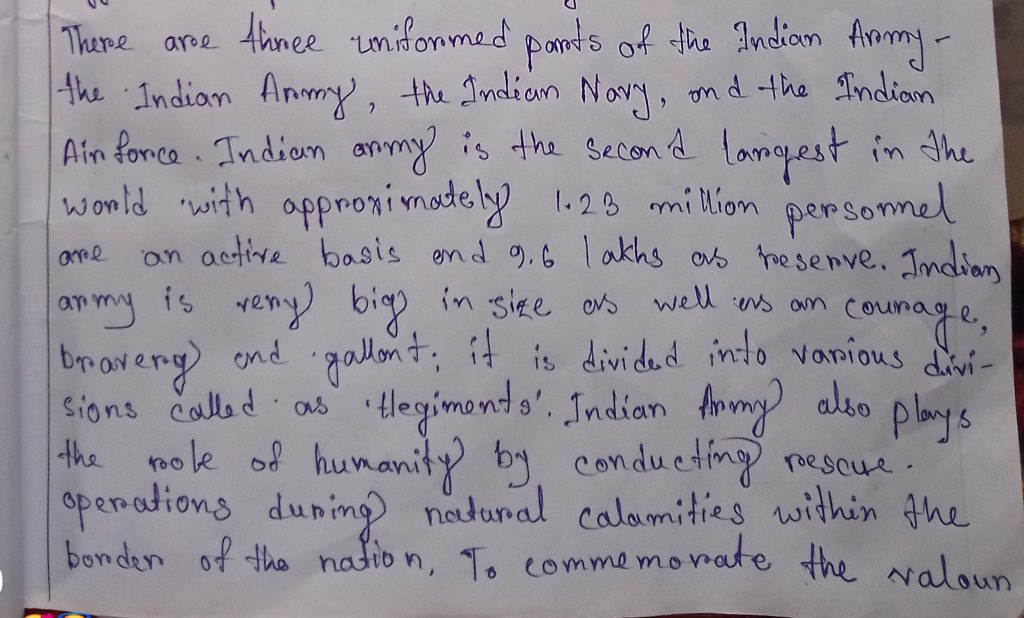 There are three uniformed parts of the Indian Army -
the Indian Army, the Indian Navy, and the Indian
Air force. Indian army is the second largest in the
world with approximately 1.23 million personnel
are an active basis and 9.6 lakhs as reserve. Indian
army is very big in size as well as an courage,
bravery and gallant; it is divided into various divi-
sions called as 'Regiments'. Indian Army also plays
the role of humanity by conducting rescue.
operations during natural calamities within the
border of the nation, To commemorate the valour